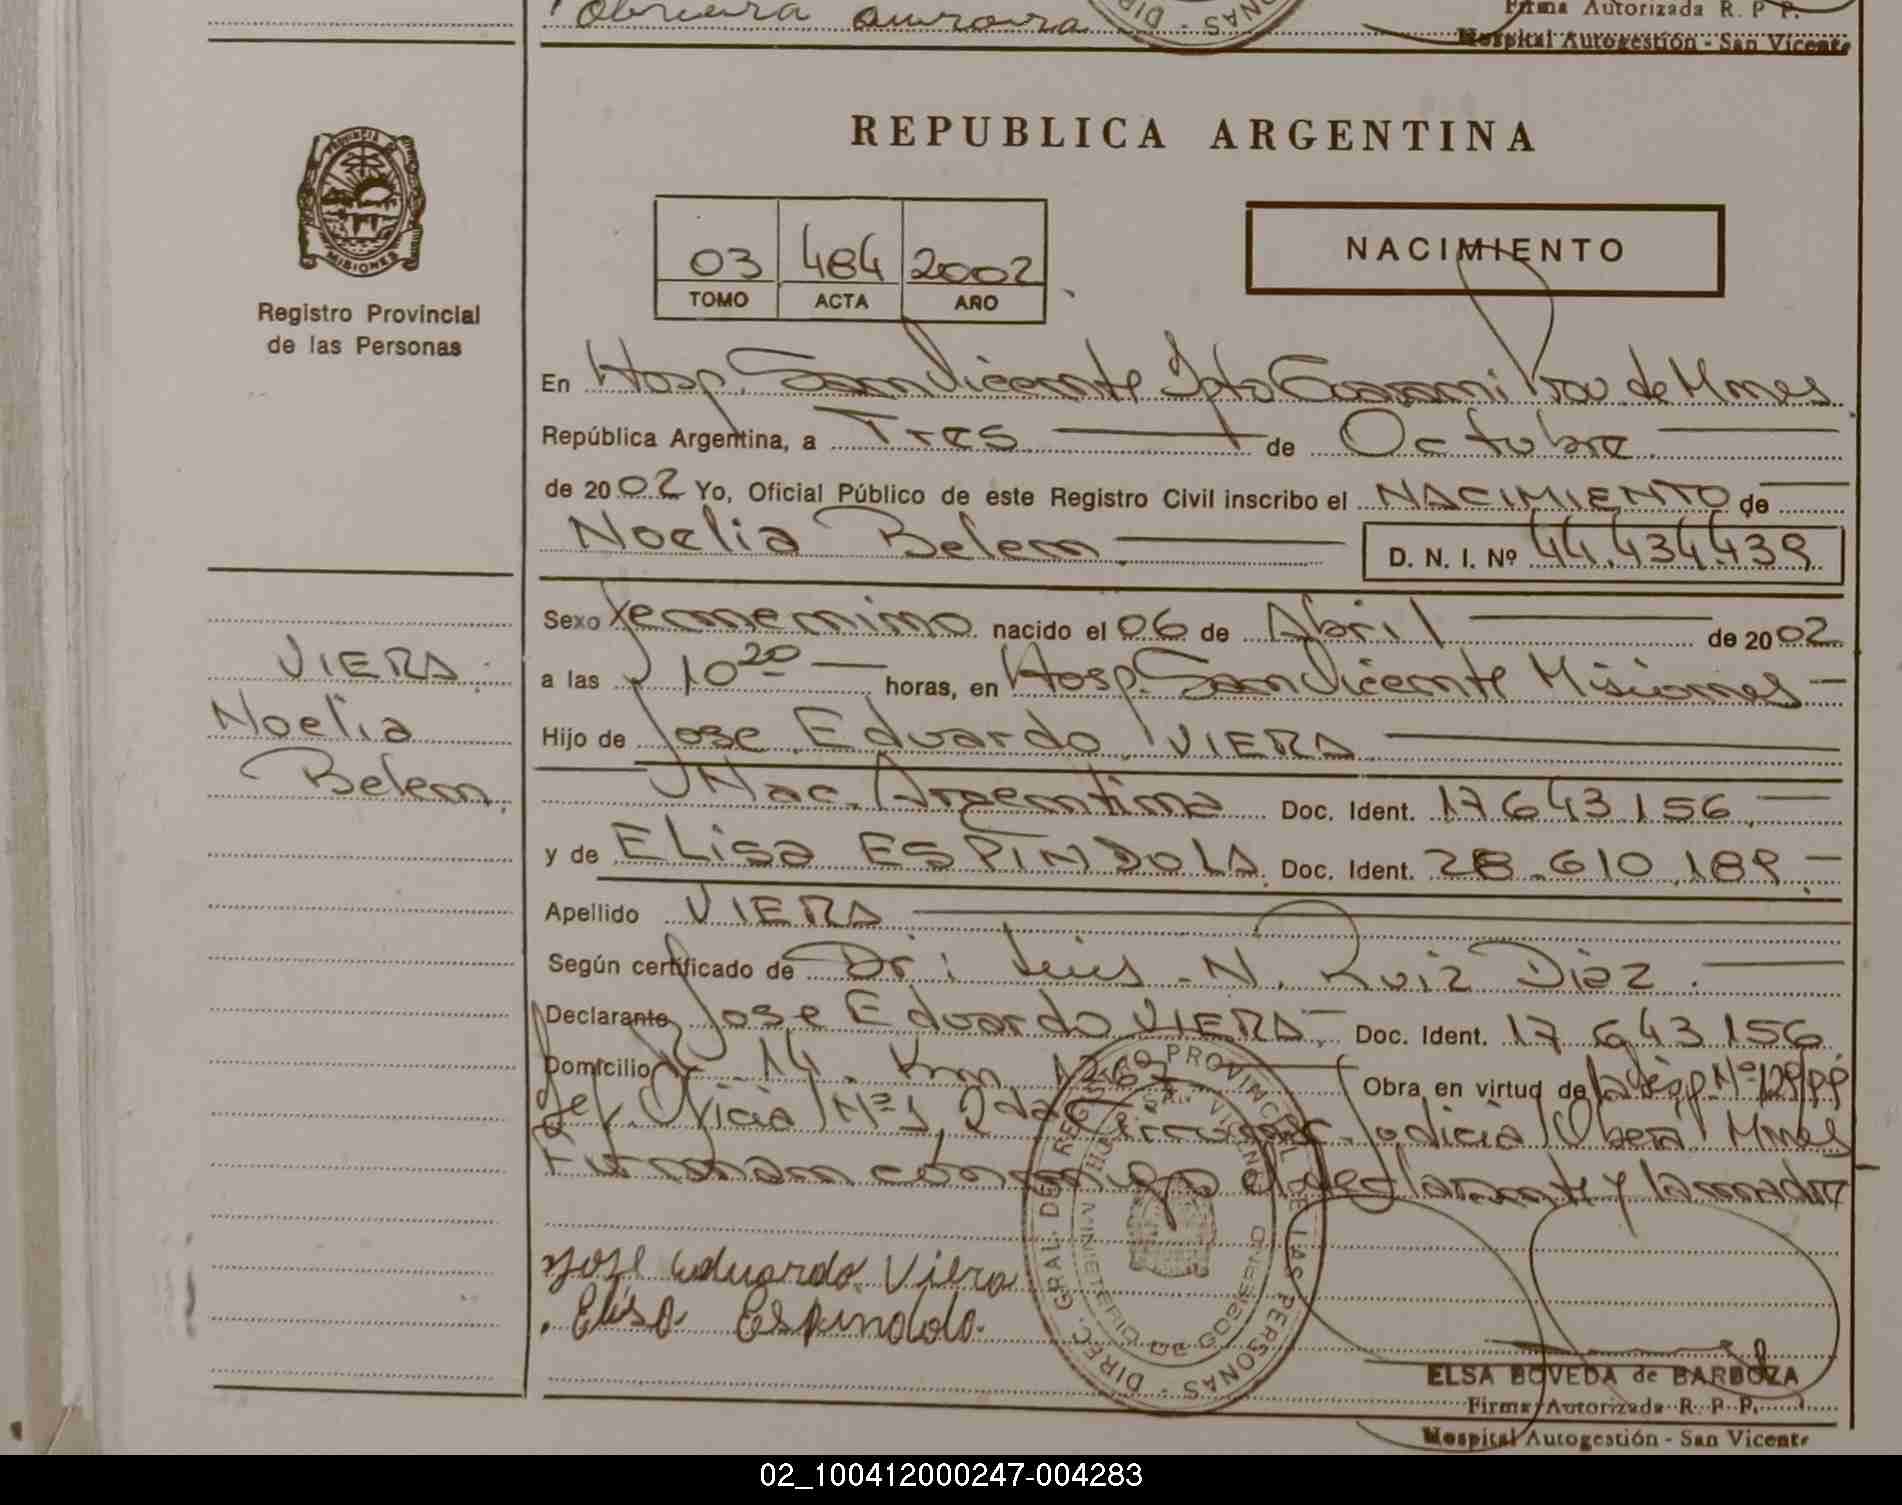 obrera aurora
Firma Autorizada R. P P.
Hospital Autogestión - San Vicente
DIR
ONAS
PROVINCIA
MISIONES
Registro Provincial
de las Personas
REPUBLICA ARGENTINA
03 484 2002
TOMO ACTA AÑO
NACIMIENTO
En Hosp. San Vicente Dpto Guarani Prov. de Mnes
República Argentina, a Tres de Octubre
de 2002 Yo, Oficial Público de este Registro Civil inscribo el NACIMIENTO de
Noelia Belem D. N. I. Nº 44.434.439
Sexo femenino nacido el 06 de Abril de 2002
a las 10 20 horas, en Hosp. San Vicente Misiones
Hijo de Jose Eduardo VIERA
Nac. Argentina Doc. Ident. 17643.156
y de ELisa ESPINDOLA Doc. Ident. 28.610.189
Apellido VIERA
Según certificado de Dr: Luis N. Ruiz Diaz.
Declarante Jose Eduardo VIERA Doc. Ident. 17 643 156
Domicilio R. 14. Km 1267 Obra en virtud de
Oficial Nº 1, 2da Judicial Obera Mnes
Firman conmigo el declarante y la madre
Jose Eduardo Viera
Elisa Espindola.
DIREC. GRAL. DEL REGISTRO PROVINCIAL DE LAS PERSONAS
MINISTERIO DE GOBIERNO
ELSA BOVEDA de BARBOZA
Firma Autorizada R. P P.
Hospital Autogestión - San Vicente
VIERA
Noelia
Belem.
02_100412000247-004283